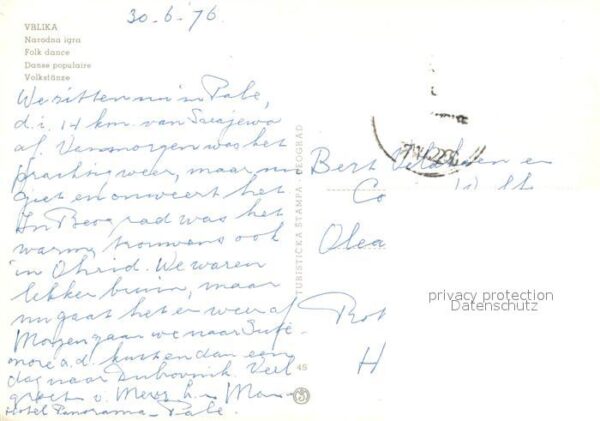 30-6-76
VRLIKA
Narodna igra
Folk dance
Danse populaire
Volkstänze
We zitten nu in Pale,
d.i. 14 km. van Serajewo
af. Vanmorgen was het
prachtig weer, maar nu
giet en onweert het.
In Beograd was het
warm, trouwens ook
in Ohrid. We waren
lekker bruin, maar
nu gaat het er weer af.
Morgen gaan we naar
a.d. kust en dan een
dag naar Dubrovnik. Veel
groeten v.
Hotel Panorama - Pale.
TURISTIČKA ŠTAMPA - BEOGRAD
45
Bert en
Co
Olea
Rot
H
privacy protection
Datenschutz